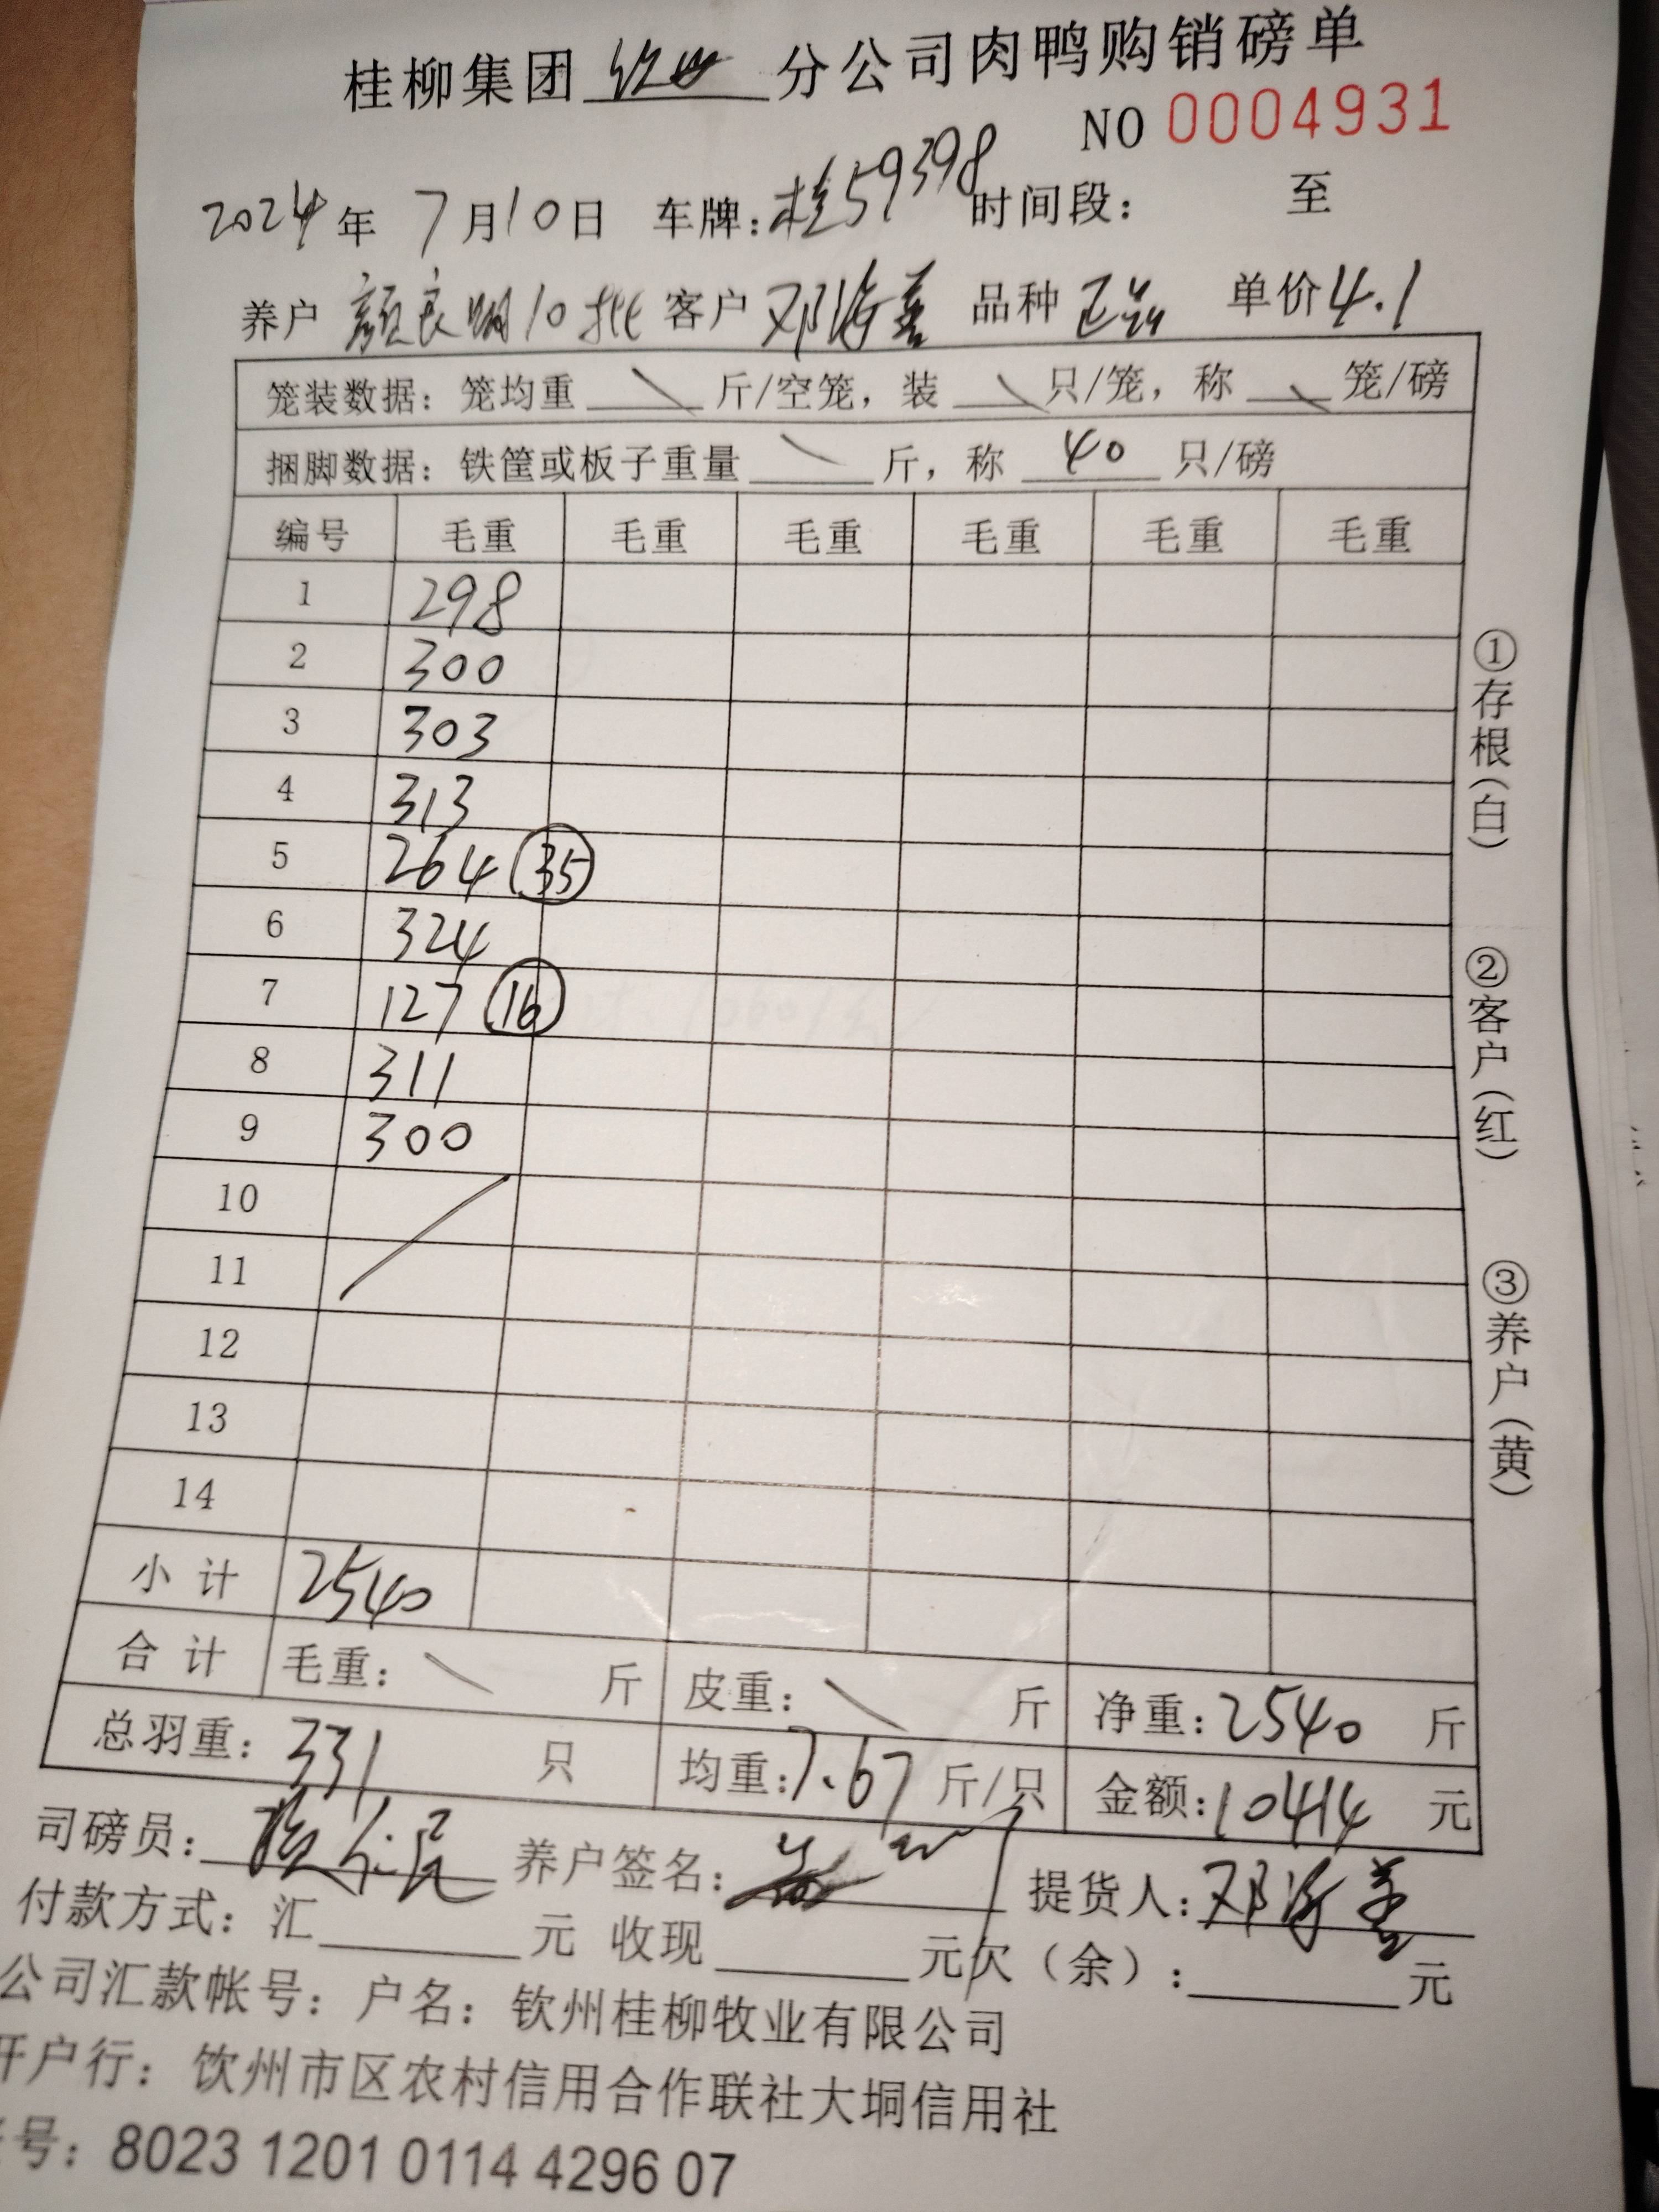 桂柳集团 分公司肉鸭购销磅单
NO 0004931
2024年 7月10日 车牌:桂59398 时间段: 至
养户 颜良明10批 客户 邓海善 品种 正品 单价4.1
笼装数据:笼均重 \ 斤/空笼,装 \ 只/笼,称 \ 笼/磅
捆脚数据:铁筐或板子重量 \ 斤,称 40 只/磅
编号 毛重 毛重 毛重 毛重 毛重 毛重
1 298
2 300
3 303
4 313
5 264 35
6 324
7 127 16
8 311
9 300
10
11
12
13
14
小计 2540
合计 毛重: \ 斤 皮重: \ 斤 净重:2540 斤
总羽重:331 只 均重:7.67 斤/只 金额:10414 元
司磅员: 养户签名: 提货人:邓海善
付款方式:汇 元 收现 元欠(余): 元
公司汇款帐号:户名:钦州桂柳牧业有限公司
开户行:钦州市区农村信用合作联社大垌信用社
号:8023 1201 0114 4296 07
①存根(白)
②客户(红)
③养户(黄)